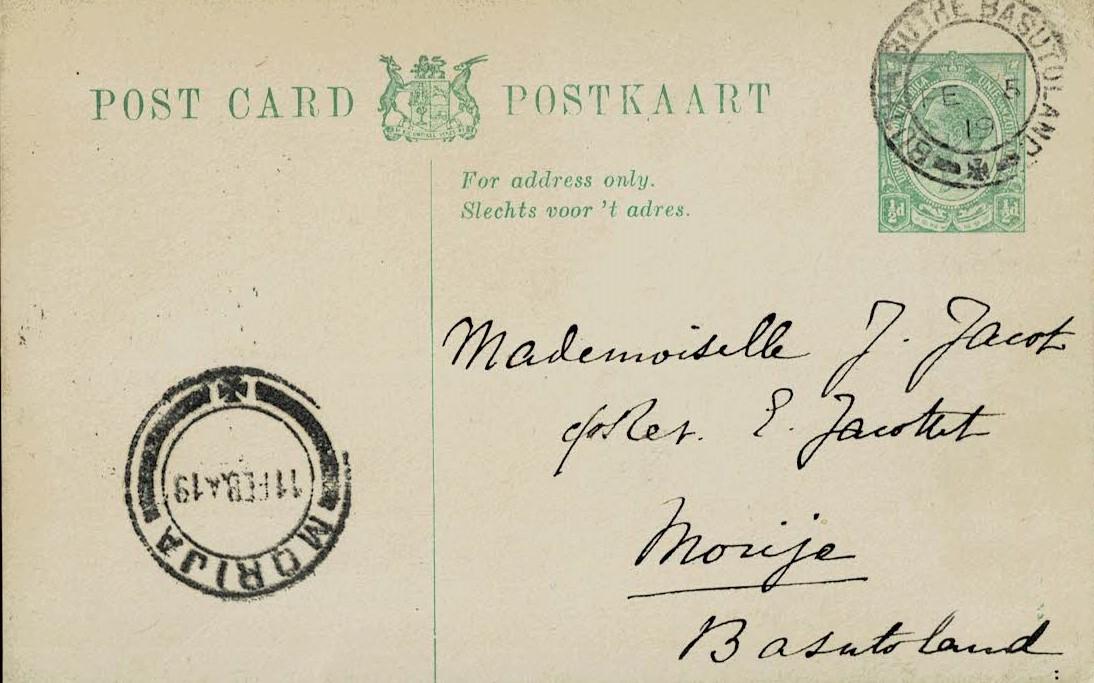 POST CARD POSTKAART
For address only.
Slechts voor 't adres.
½d ½d
BASUTOLAND
FE 5
19
Mademoiselle J. Jacot
c/o Rev. E. Jacottet
Morija
Basutoland
11 FEB 19
MORIJA